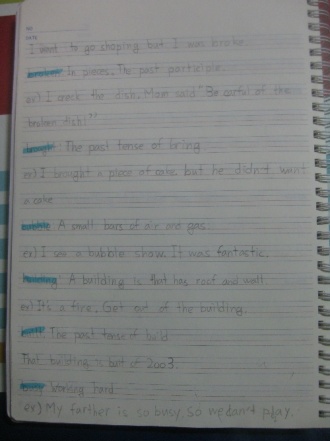 NO.
DATE
I want to go shoping but I was broke.
broken: In pieces. The past participle.
ex) I crack the dish. Mom said "Be carful of the
broken dish!"
brought: The past tense of bring
ex) I brought a piece of cake but he didn't want
a cake
bubble: A small bars of air and gas.
ex) I see a bubble show. It was fantastic.
building: A building is that has roof and wall.
ex) It's a fire. Get out of the building.
built: The past tense if build
That building is built of 2003.
busy: Working hard
ex) My farther is so busy, so we don't play.